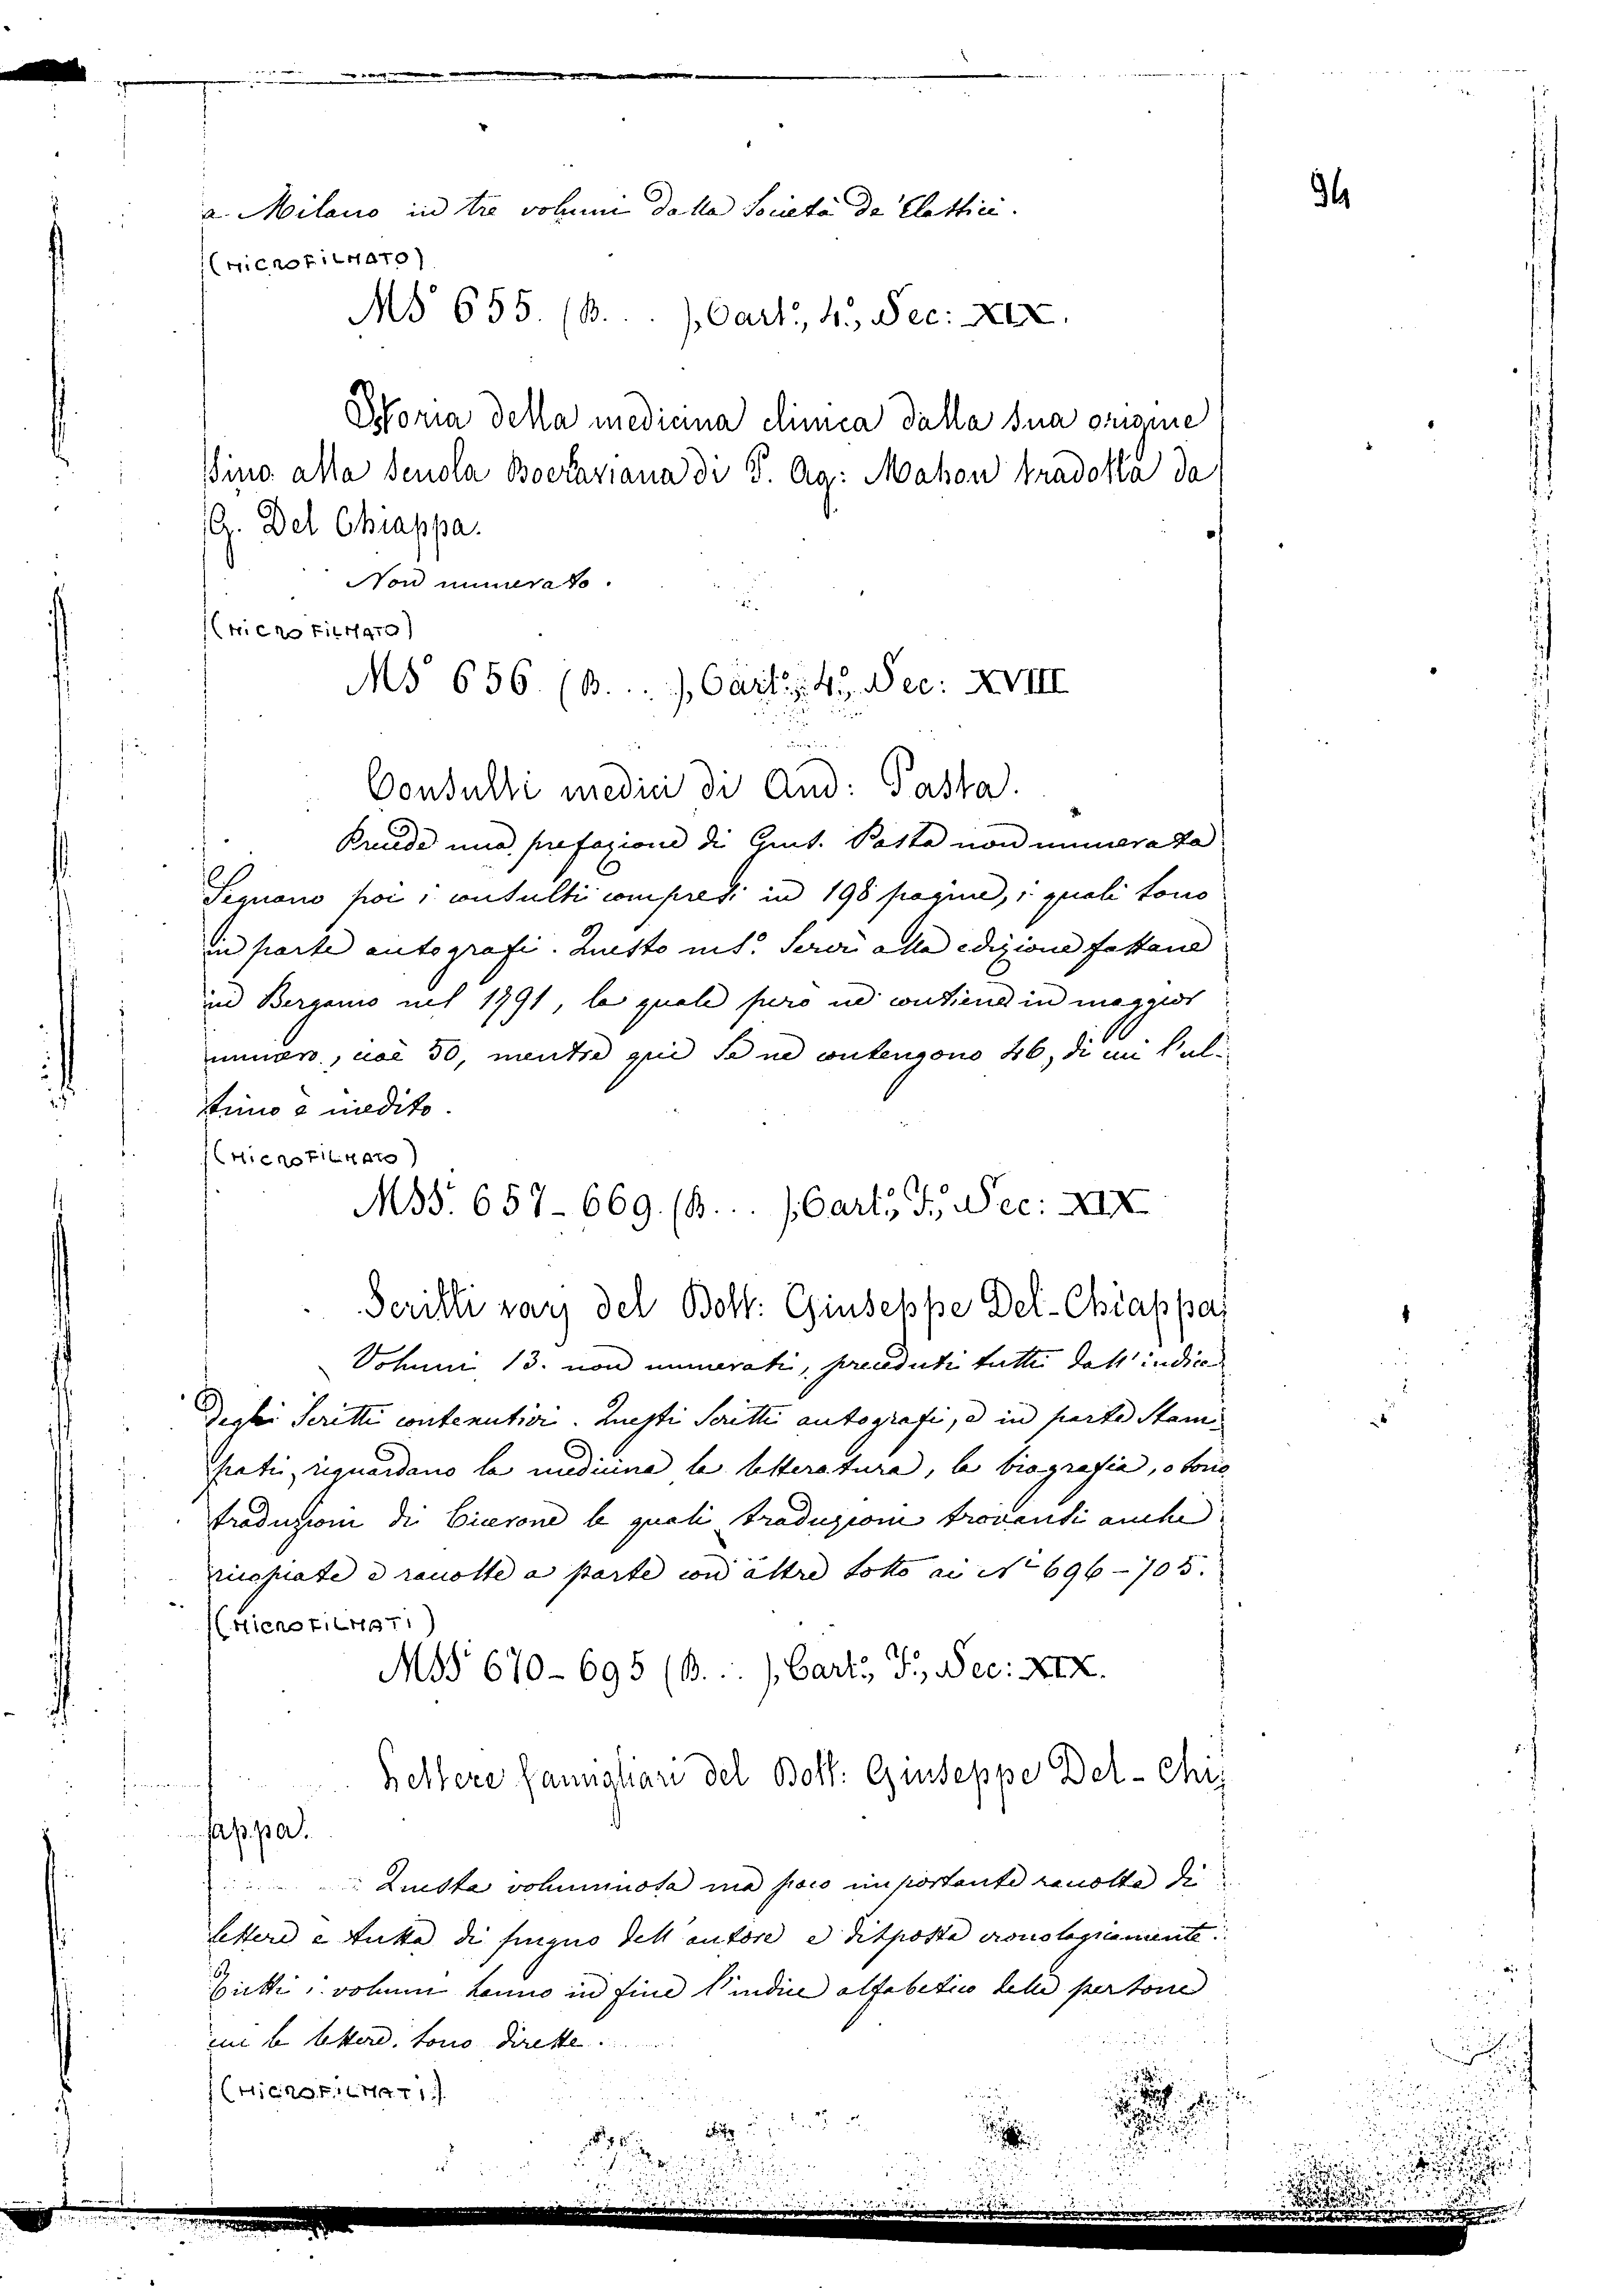 94
a Milano in tre volumi dalla Società de' Classici.
(MICROFILMATO)
MS 655. (B. . . ), Cart.º, 4.º, Sec: XIX.
Storia della medicina clinica dalla sua origine
sino alla scuola Boeraviana di P. Ag: Mahon tradotta da
G. Del Chiappa.
Non numerato.
(MICROFILMATO)
MS 656. (B. . . ), Cart.º, 4.º, Sec: XVIII
Consulti medici di And: Pasta.
Precede una prefazione di Gius. Pasta non numerata
Seguono poi i consulti compresi in 198 pagine, i quali sono
in parte autografi. Questo ms.º servì alla edizione fattane
in Bergamo nel 1791, la quale però ne contiene in maggior
numero, cioè 50, mentre qui se ne contengono 46, di cui l'ul-
timo è inedito.
(MICROFILMATO)
MSS. 657-669. (B. . . ), Cart.º, F.º, Sec: XIX
Scritti varj del Dott: Giuseppe Del-Chiappa
Volumi 13. non numerati, preceduti tutti dall'indice
degli scritti contenutivi. Questi scritti autografi, e in parte stam-
pati, riguardano la medicina, la letteratura, la biografia, o sono
traduzioni di Cicerone le quali traduzioni trovansi anche
ricopiate e raccolte a parte con altre sotto ai Nº 696-705.
(MICROFILMATI)
MSS 670-695 (B. . . ), Cart.º, F.º, Sec: XIX.
Lettere famigliari del Dott: Giuseppe Del-Chi-
appa.
Questa voluminosa ma poco importante raccolta di
lettere è tutta di pugno dell'autore e disposta cronologicamente.
Tutti i volumi hanno in fine l'indice alfabetico delle persone
cui le lettere sono dirette.
(MICROFILMATI)